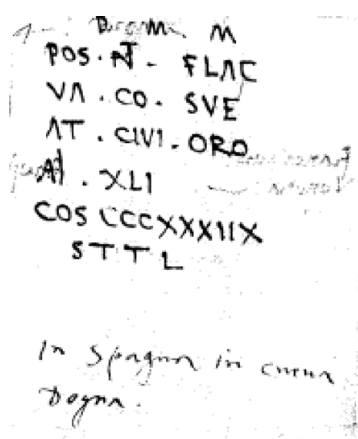 M
POS. FLAC
VA . CO . SVE
AT . CIVI . ORO
XLI
COS CCCXXXIIX
S T T L
In Spagna in
Dogna.